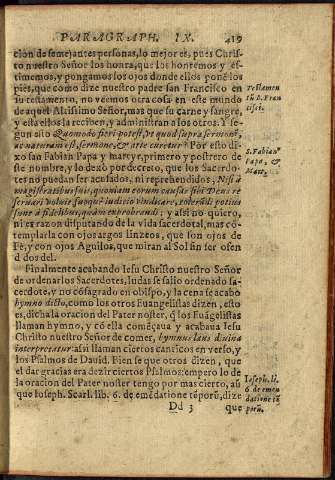 PARAGRAPH. IX. 419
cion de semejantes personas, lo mejor es, pues Chris-
to nuestro Señor los honra, que los honremos y es-
timemos, y pongamos los ojos donde ellos ponē los
pies, que como dize nuestro padre san Francisco en
su testamento, no veemos otra cosa en este mundo
de aquel Altissimo Señor, mas que su carne y sangre,
y esta ellos la reciben, y administran a los otros. Y se-
gun esto Quomodo fieri potest, vt quod supra sermonē,
ac naturam est, sermone, & arte curetur? Por esto di-
xo san Fabian Papa y martyr, primero y postrero de
este nombre, y lo dexò por decreto, que los Sacerdo-
tes no puedan ser acusados, ni reprehendidos, Nisi à
magistratibus suis, quoniam eorum causas sibi Deus re
seruari voluit suoque iudicio vindicare, tolerādi potius
sunt à fidelibus, quàm exprobrandi; y assi no quiero,
ni es razon disputando de la vida sacerdotal, mas cō-
templarla con ojos largos linzeos, que son ojos de
Fè, y con ojos Aguilos, que miran al Sol sin ser ofen
didos del.
Finalmente acabando Iesu Christo nuestro Señor
de ordenarlos Sacerdotes, Iudas se salio ordenado sa-
cerdote, y no cōsagrado en obispo, y la cena se acabò
hymno dicto, como los otros Euangelistas dizen, esto
es, dicha la oracion del Pater noster, q̃ los Euãgelistas
llaman hymno, y cō ella comēçaua y acabaua Iesu
Christo nuestro Señor de comer, hymnus laus diuina
interpretatur: assi llaman ciertos canticos en verso, y
los Psalmos de Dauid. Bien se que otros dizen, que
el dar gracias era dezir ciertos Psalmos: empero lo de
la oracion del Pater noster tengo por mas cierto, assi
que Ioseph. Scarl. lib. 6. de emēdatione tēporū, dize
Dd 3 que
Testamen
to S. Fran
cisci.
S. Fabian
Papa, &
Mart.
Ioseph. li.
6. de emen
datione tē
porū.